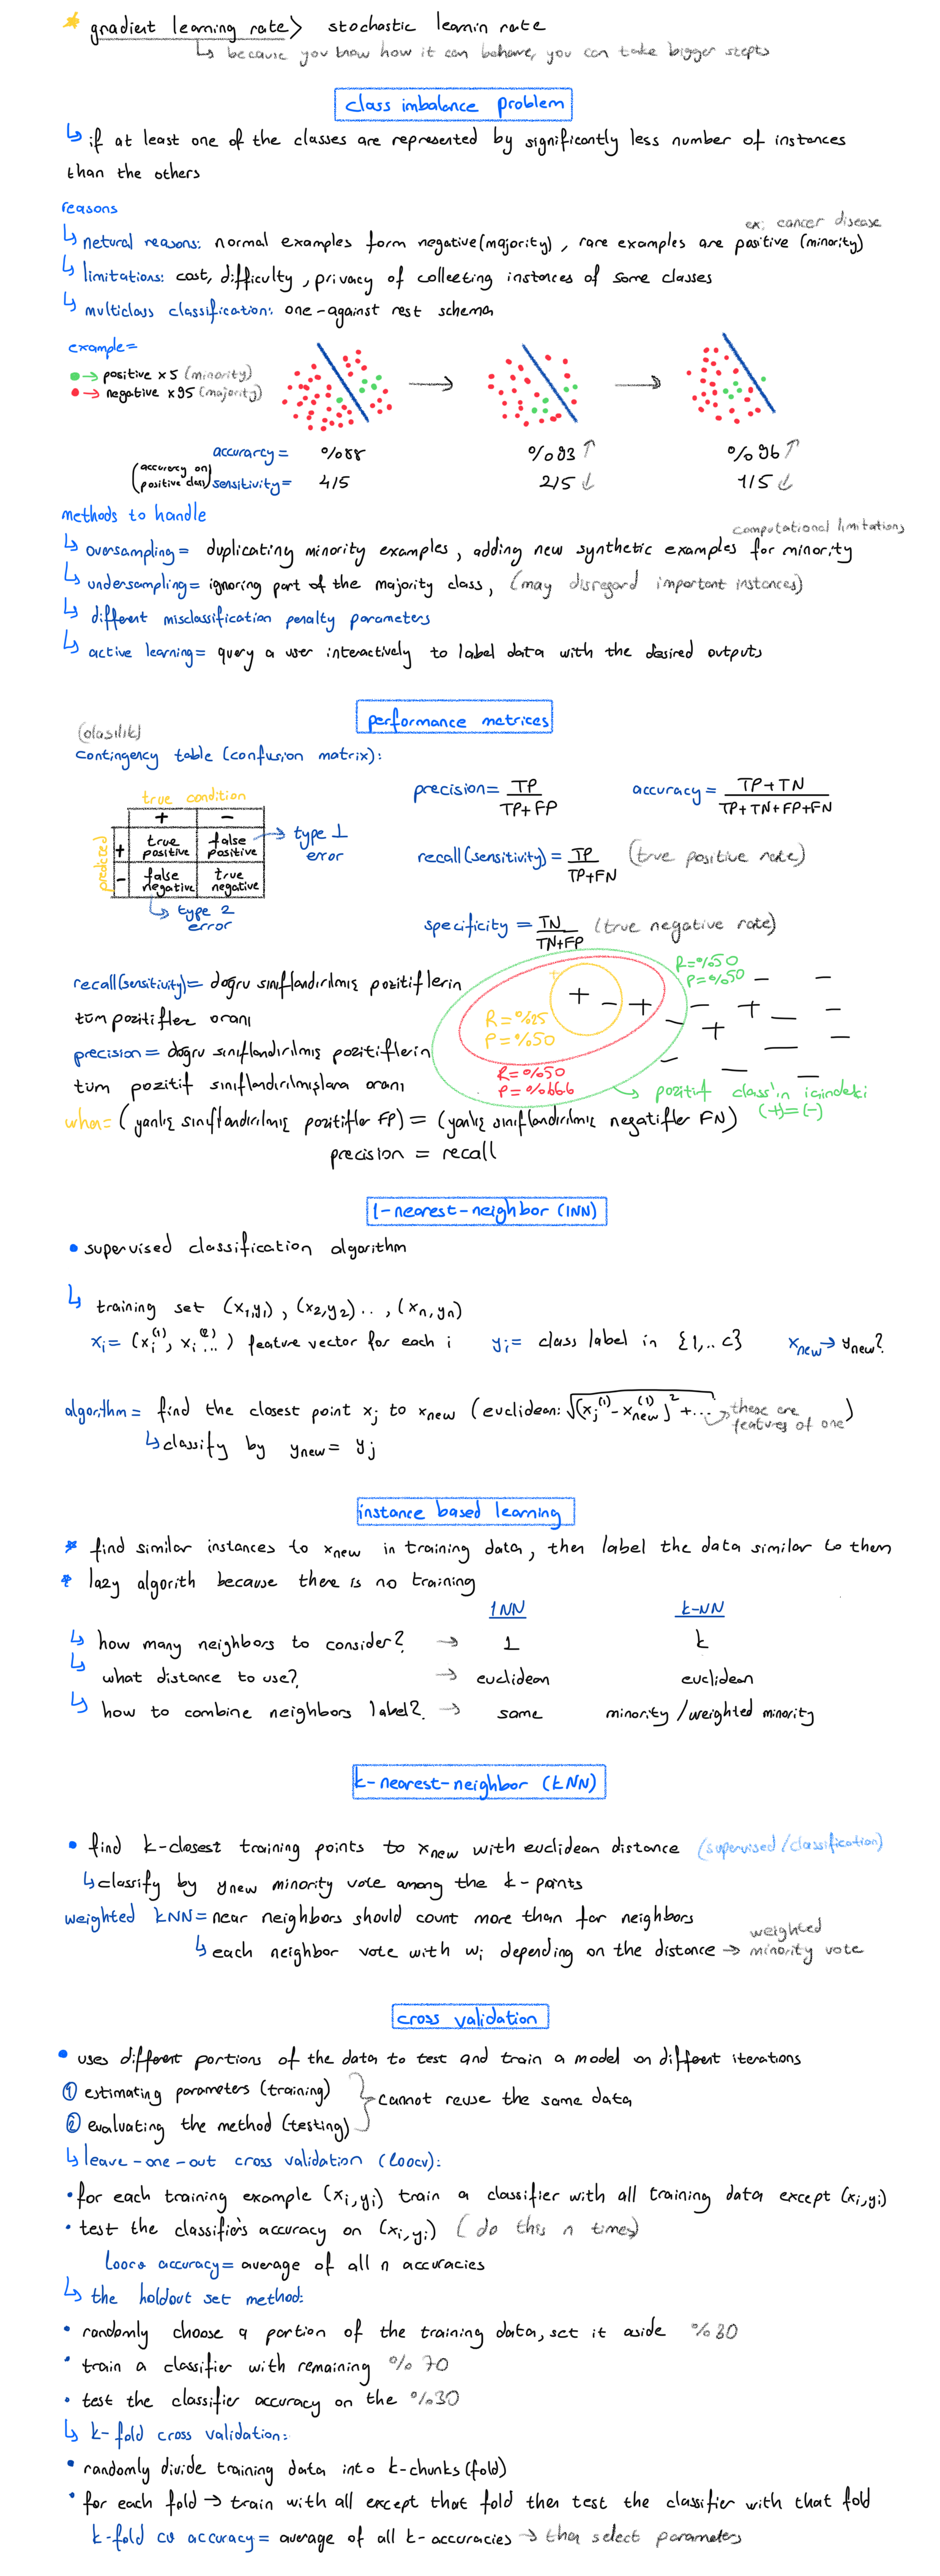 * gradient learning rate > stochastic learnin rate
↳ because you know how it can behave, you can take bigger stepts
class imbalance problem
↳ if at least one of the classes are represented by significantly less number of instances
than the others
reasons
ex: cancer disease
↳ netural reasons: normal examples form negative (majority), rare examples are positive (minority)
↳ limitations: cost, difficulty, privacy of collecting instances of some classes
↳ multiclass classification: one-against rest schema
example=
● → positive x5 (minority)
● → negative x95 (majority)
accurarcy = %88 %93 ↑ %96 ↑
(accuracy on positive class) sensitivity = 4/5 2/5 ↓ 1/5 ↓
methods to handle
computational limitations
↳ oversampling = duplicating minority examples, adding new synthetic examples for minority
↳ undersampling = ignoring part of the majority class, (may disregard important instances)
↳ different misclassification penalty parameters
↳ active learning = query a user interactively to label data with the desired outputs
performance metrices
(olasılık)
contingency table (confusion matrix):
true condition
+ -
predicted
+ true positive false positive → type 1 error
- false negative true negative
↳ type 2 error
precision = TP / TP + FP
accuracy = TP + TN / TP + TN + FP + FN
recall (sensitivity) = TP / TP + FN (true positive rate)
specificity = TN / TN + FP (true negative rate)
recall (sensitivity) = doğru sınıflandırılmış pozitiflerin
tüm pozitiflere oranı
precision = doğru sınıflandırılmış pozitiflerin
tüm pozitif sınıflandırılmışlara oranı
R = %50
P = %50
R = %25
P = %50
R = %50
P = %666
→ pozitif class'ın icindeki
(+) = (-)
when = (yanlış sınıflandırılmış pozitifler FP) = (yanlış sınıflandırılmış negatifler FN)
precision = recall
1-nearest-neighbor (1NN)
• supervised classification algorithm
↳ training set (x1,y1), (x2,y2) .. , (xn,yn)
xi = (xi^(1), xi^(2) ...) feature vector for each i yi = class label in {1,.. C} xnew → ynew?
algorithm = find the closest point xj to xnew (euclidean: √(xj^(1) - xnew^(1))^2 + ... → these are features of one)
↳ classify by ynew = yj
instance based learning
* find similar instances to xnew in training data, then label the data similar to them
* lazy algorith because there is no training
1NN k-NN
↳ how many neighbors to consider? → 1 k
↳ what distance to use? → euclidean euclidean
↳ how to combine neighbors label? → same minority / weighted minority
k-nearest-neighbor (kNN)
• find k-closest training points to xnew with euclidean distance (supervised / classification)
↳ classify by ynew minority vote among the k-points
weighted kNN = near neighbors should count more than far neighbors
↳ each neighbor vote with wi depending on the distance → weighted minority vote
cross validation
• uses different portions of the data to test and train a model on different iterations
① estimating parameters (training)
② evaluating the method (testing)
cannot reuse the same data
↳ leave-one-out cross validation (loocv):
• for each training example (xi,yi) train a classifier with all training data except (xi,yi)
• test the classifier's accuracy on (xi,yi) (do this n times)
loocv accuracy = average of all n accuracies
↳ the holdout set method:
• randomly choose a portion of the training data, set it aside %30
• train a classifier with remaining %70
• test the classifier accuracy on the %30
↳ k-fold cross validation:
• randomly divide training data into k-chunks (fold)
• for each fold → train with all except that fold then test the classifier with that fold
k-fold cv accuracy = average of all k-accuracies → then select parameters